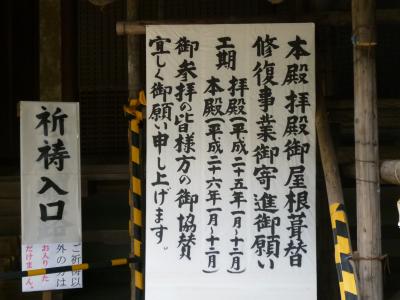 本殿拝殿御屋根葺替
修復事業御寄進御願い
工期 拝殿(平成二十五年一月~十二月)
本殿(平成二十六年一月~十二月)
御参拝の皆様方の御協賛
宜しく御願い申し上げます。
祈祷入口
ご祈祷以
外の方は
お入りいた
だけません。